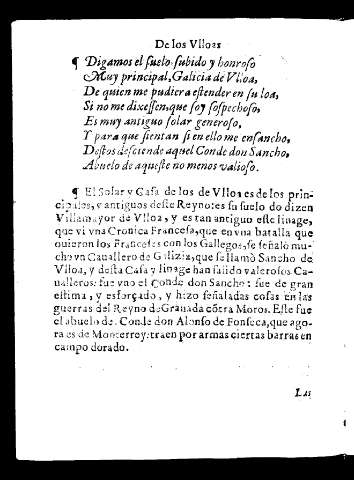 De los Vlloas
¶ Digamos el suelo subido y honroso
Muy principal, Galicia de Vlloa,
De quien me pudiera estender en su loa,
Si no me dixessen, que soy sospechoso,
Es muy antiguo solar generoso,
Y para que sientan si en ello me ensancho,
Destos desciende aquel Conde don Sancho,
Abuelo de aqueste no menos valioso.
¶ El Solar y Casa de los de Vlloa es de los prin-
cipales, y antiguos deste Reyno: es su suelo do dizen
Villamayor de Vlloa, y es tan antiguo este linage,
que vi vna Cronica Francesa, que en vna batalla que
ouieron los Franceses con los Gallegos, se señaló mu-
cho vn Cauallero de Galizia, que se llamò Sancho de
Vlloa, y desta Casa y linage han salido valerosos Ca-
ualleros: fue vno el Conde don Sancho: fue de gran
estima, y esforçado, y hizo señaladas cosas en las
guerras del Reyno de Granada cõtra Moros. Este fue
el abuelo de. Conde don Alonso de Fonseca, que ago-
ra es de Monterrey: traen por armas ciertas barras en
campo dorado.
Las